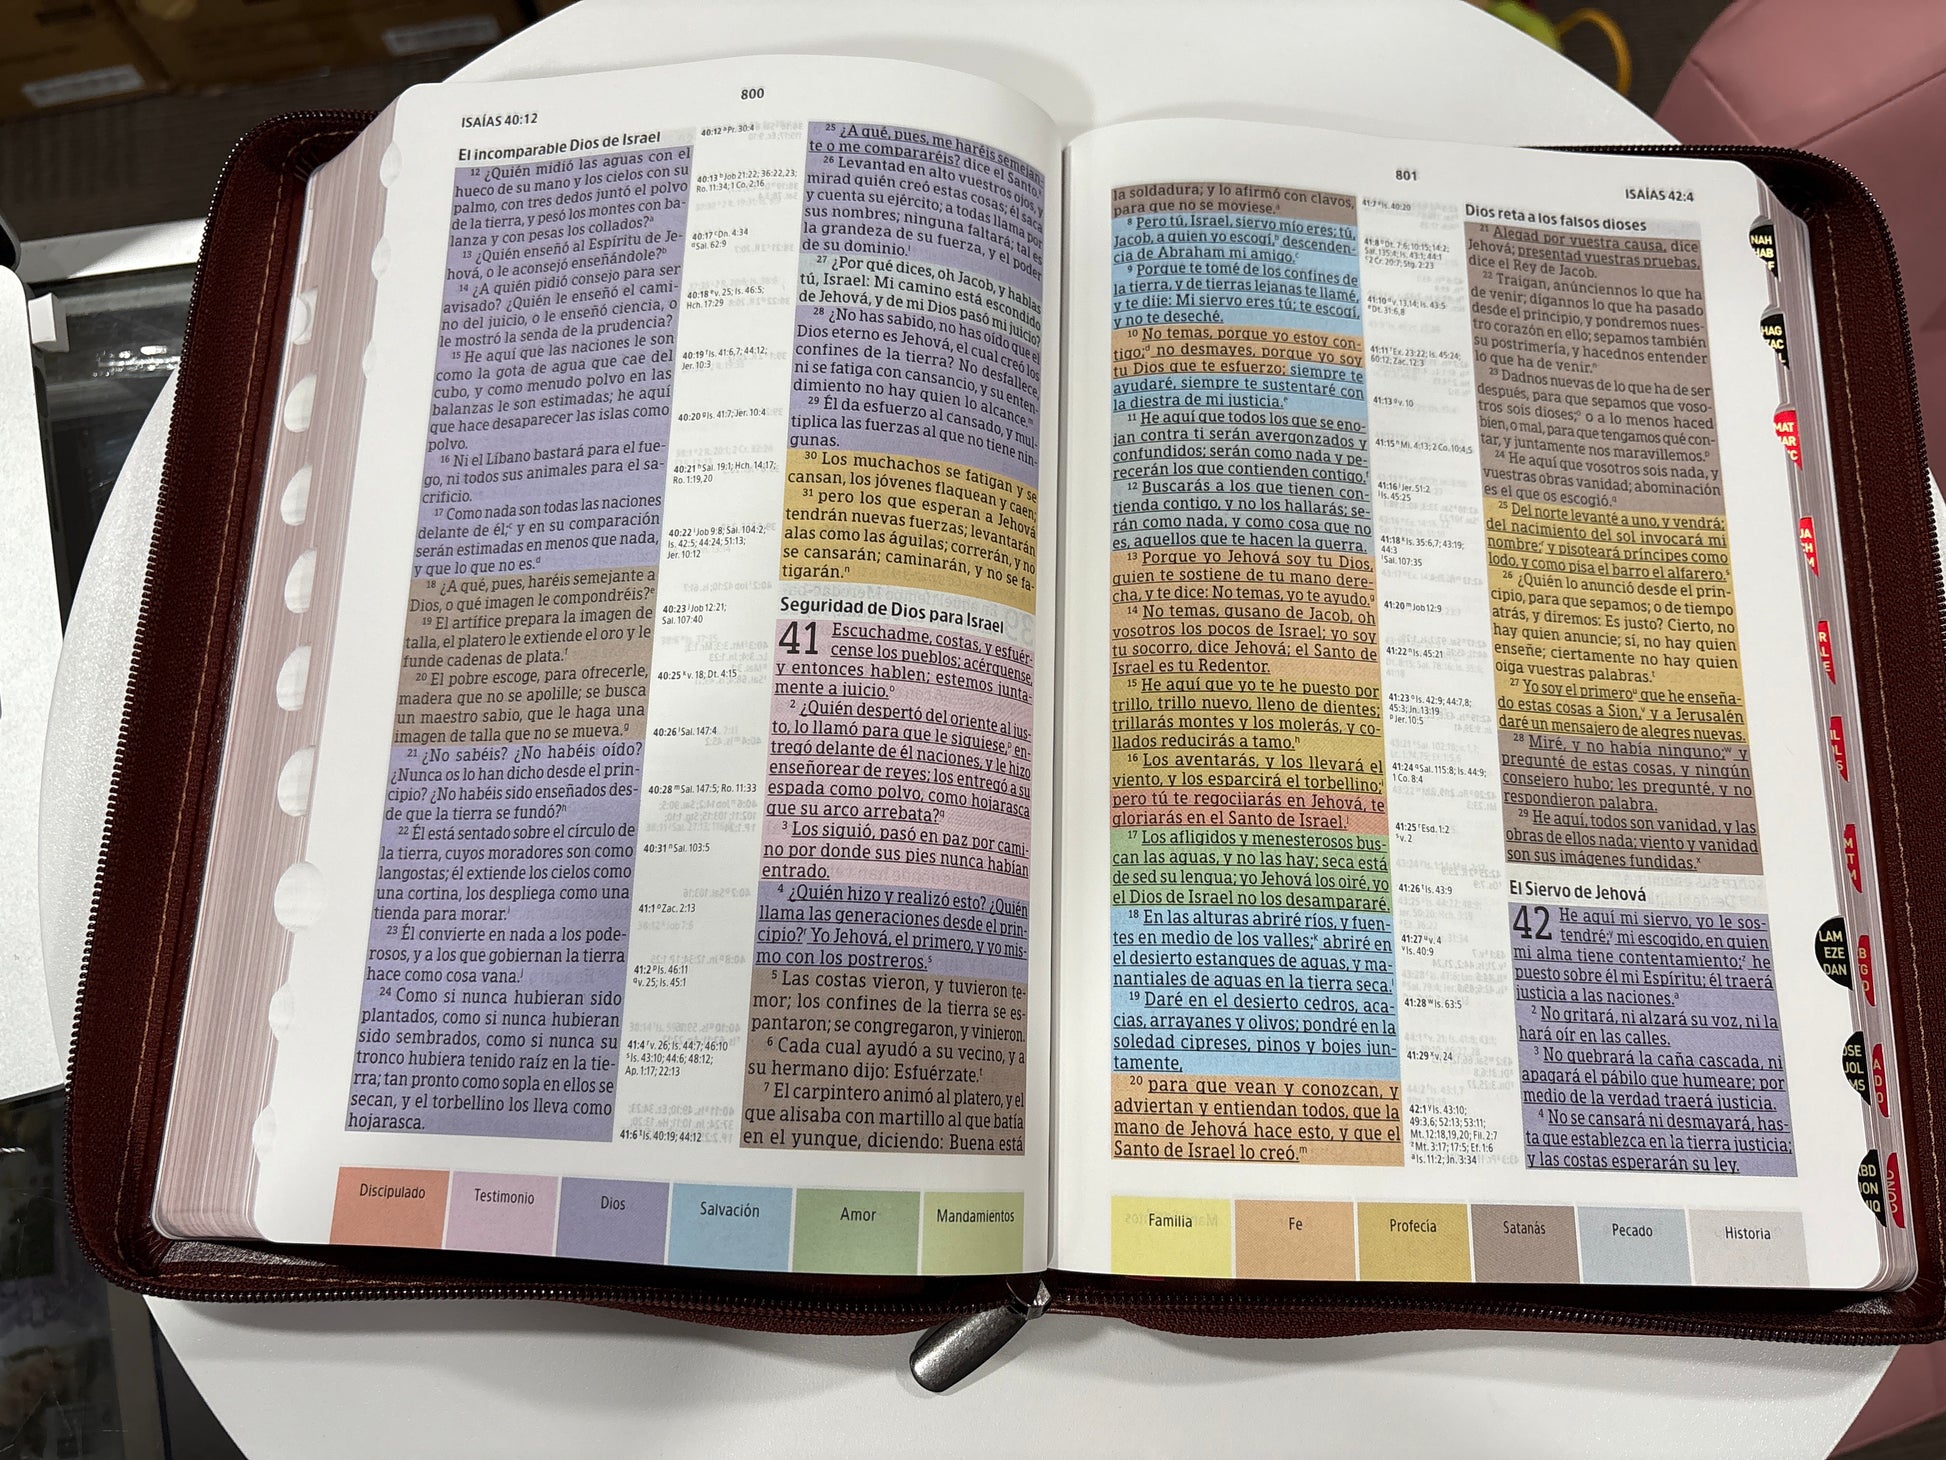 800
ISAÍAS 40:12
El incomparable Dios de Israel
12 ¿Quién midió las aguas con el
hueco de su mano y los cielos con su
palmo, con tres dedos juntó el polvo
de la tierra, y pesó los montes con ba-
lanza y con pesas los collados?a
13 ¿Quién enseñó al Espíritu de Je-
hová, o le aconsejó enseñándole?b
14 ¿A quién pidió consejo para ser
avisado? ¿Quién le enseñó el cami-
no del juicio, o le enseñó ciencia, o
le mostró la senda de la prudencia?
15 He aquí que las naciones le son
como la gota de agua que cae del
cubo, y como menudo polvo en las
balanzas le son estimadas; he aquí
que hace desaparecer las islas como
polvo.
16 Ni el Líbano bastará para el fue-
go, ni todos sus animales para el sa-
crificio.
17 Como nada son todas las naciones
delante de él;c y en su comparación
serán estimadas en menos que nada,
y que lo que no es.d
18 ¿A qué, pues, haréis semejante a
Dios, o qué imagen le compondréis?e
19 El artífice prepara la imagen de
talla, el platero le extiende el oro y le
funde cadenas de plata.f
20 El pobre escoge, para ofrecerle,
madera que no se apolille; se busca
un maestro sabio, que le haga una
imagen de talla que no se mueva.g
21 ¿No sabéis? ¿No habéis oído?
¿Nunca os lo han dicho desde el prin-
cipio? ¿No habéis sido enseñados des-
de que la tierra se fundó?h
22 Él está sentado sobre el círculo de
la tierra, cuyos moradores son como
langostas; él extiende los cielos como
una cortina, los despliega como una
tienda para morar.i
23 Él convierte en nada a los pode-
rosos, y a los que gobiernan la tierra
hace como cosa vana.j
24 Como si nunca hubieran sido
plantados, como si nunca hubieran
sido sembrados, como si nunca su
tronco hubiera tenido raíz en la tie-
rra; tan pronto como sopla en ellos se
secan, y el torbellino los lleva como
hojarasca.
40:12 a Pr. 30:4
40:13 b Job 21:22; 36:22,23;
Ro. 11:34; 1 Co. 2:16
40:17 c Dn. 4:34
d Sal. 62:9
40:18 e v. 25; Is. 46:5;
Hch. 17:29
40:19 f Is. 41:6,7; 44:12;
Jer. 10:3
40:20 g Is. 41:7; Jer. 10:4
40:21 h Sal. 19:1; Hch. 14:17;
Ro. 1:19,20
40:22 i Job 9:8; Sal. 104:2;
Is. 42:5; 44:24; 51:13;
Jer. 10:12
40:23 j Job 12:21;
Sal. 107:40
40:25 k v. 18; Dt. 4:15
40:26 l Sal. 147:4
40:28 m Sal. 147:5; Ro. 11:33
40:31 n Sal. 103:5
41:1 o Zac. 2:13
41:2 p Is. 46:11
q v. 25; Is. 45:1
41:4 r v. 26; Is. 44:7; 46:10
s Is. 43:10; 44:6; 48:12;
Ap. 1:17; 22:13
41:6 t Is. 40:19; 44:12
25 ¿A qué, pues, me haréis semejan-
te o me compararéis? dice el Santo.k
26 Levantad en alto vuestros ojos, y
mirad quién creó estas cosas; él saca
y cuenta su ejército; a todas llama por
sus nombres; ninguna faltará; tal es
la grandeza de su fuerza, y el poder
de su dominio.l
27 ¿Por qué dices, oh Jacob, y hablas
tú, Israel: Mi camino está escondido
de Jehová, y de mi Dios pasó mi juicio?
28 ¿No has sabido, no has oído que el
Dios eterno es Jehová, el cual creó los
confines de la tierra? No desfallece,
ni se fatiga con cansancio, y su enten-
dimiento no hay quien lo alcance.m
29 Él da esfuerzo al cansado, y mul-
tiplica las fuerzas al que no tiene nin-
gunas.
30 Los muchachos se fatigan y se
cansan, los jóvenes flaquean y caen;
31 pero los que esperan a Jehová
tendrán nuevas fuerzas; levantarán
alas como las águilas; correrán, y no
se cansarán; caminarán, y no se fa-
tigarán.n
Seguridad de Dios para Israel
41 Escuchadme, costas, y esfuér-
cense los pueblos; acérquense,
y entonces hablen; estemos junta-
mente a juicio.o
2 ¿Quién despertó del oriente al jus-
to, lo llamó para que le siguiese,p en-
tregó delante de él naciones, y le hizo
enseñorear de reyes; los entregó a su
espada como polvo, como hojarasca
que su arco arrebata?q
3 Los siguió, pasó en paz por cami-
no por donde sus pies nunca habían
entrado.
4 ¿Quién hizo y realizó esto? ¿Quién
llama las generaciones desde el prin-
cipio?r Yo Jehová, el primero, y yo mis-
mo con los postreros.s
5 Las costas vieron, y tuvieron te-
mor; los confines de la tierra se es-
pantaron; se congregaron, y vinieron.
6 Cada cual ayudó a su vecino, y a
su hermano dijo: Esfuérzate.t
7 El carpintero animó al platero, y el
que alisaba con martillo al que batía
en el yunque, diciendo: Buena está
Discipulado
Testimonio
Dios
Salvación
Amor
Mandamientos
801
ISAÍAS 42:4
la soldadura; y lo afirmó con clavos,
para que no se moviese.a
8 Pero tú, Israel, siervo mío eres; tú,
Jacob, a quien yo escogí,b descenden-
cia de Abraham mi amigo.c
9 Porque te tomé de los confines de
la tierra, y de tierras lejanas te llamé,
y te dije: Mi siervo eres tú; te escogí,
y no te deseché.
10 No temas, porque yo estoy con-
tigo;d no desmayes, porque yo soy
tu Dios que te esfuerzo; siempre te
ayudaré, siempre te sustentaré con
la diestra de mi justicia.e
11 He aquí que todos los que se eno-
jan contra ti serán avergonzados y
confundidos; serán como nada y pe-
recerán los que contienden contigo.f
12 Buscarás a los que tienen con-
tienda contigo, y no los hallarás; se-
rán como nada, y como cosa que no
es, aquellos que te hacen la guerra.
13 Porque yo Jehová soy tu Dios,
quien te sostiene de tu mano dere-
cha, y te dice: No temas, yo te ayudo.g
14 No temas, gusano de Jacob, oh
vosotros los pocos de Israel; yo soy
tu socorro, dice Jehová; el Santo de
Israel es tu Redentor.
15 He aquí que yo te he puesto por
trillo, trillo nuevo, lleno de dientes;
trillarás montes y los molerás, y co-
llados reducirás a tamo.h
16 Los aventarás, y los llevará el
viento, y los esparcirá el torbellino;i
pero tú te regocijarás en Jehová, te
gloriarás en el Santo de Israel.j
17 Los afligidos y menesterosos bus-
can las aguas, y no las hay; seca está
de sed su lengua; yo Jehová los oiré, yo
el Dios de Israel no los desampararé.
18 En las alturas abriré ríos, y fuen-
tes en medio de los valles;k abriré en
el desierto estanques de aguas, y ma-
nantiales de aguas en la tierra seca.l
19 Daré en el desierto cedros, aca-
cias, arrayanes y olivos; pondré en la
soledad cipreses, pinos y bojes jun-
tamente,
20 para que vean y conozcan, y
adviertan y entiendan todos, que la
mano de Jehová hace esto, y que el
Santo de Israel lo creó.m
41:7 a Is. 40:20
41:8 b Dt. 7:6; 10:15; 14:2;
Sal. 135:4; Is. 43:1; 44:1
c 2 Cr. 20:7; Stg. 2:23
41:10 d v. 13,14; Is. 43:5
e Dt. 31:6,8
41:11 f Ex. 23:22; Is. 45:24;
60:12; Zac. 12:3
41:13 g v. 10
41:15 h Mi. 4:13; 2 Co. 10:4,5
41:16 i Jer. 51:2
j Is. 45:25
41:18 k Is. 35:6,7; 43:19;
44:3
l Sal. 107:35
41:20 m Job 12:9
41:22 n Is. 45:21
41:23 o Is. 42:9; 44:7,8;
45:3; Jn. 13:19
p Jer. 10:5
41:24 q Sal. 115:8; Is. 44:9;
1 Co. 8:4
41:25 r Esd. 1:2
s v. 2
41:26 t Is. 43:9
41:27 u v. 4
v Is. 40:9
41:28 w Is. 63:5
41:29 x v. 24
42:1 y Is. 43:10;
49:3,6; 52:13; 53:11;
Mt. 12:18,19,20; Fil. 2:7
z Mt. 3:17; 17:5; Ef. 1:6
a Is. 11:2; Jn. 3:34
Dios reta a los falsos dioses
21 Alegad por vuestra causa, dice
Jehová; presentad vuestras pruebas,
dice el Rey de Jacob.
22 Traigan, anúnciennos lo que ha
de venir; dígannos lo que ha pasado
desde el principio, y pondremos nues-
tro corazón en ello; sepamos también
su postrimería, y hacednos entender
lo que ha de venir.n
23 Dadnos nuevas de lo que ha de ser
después, para que sepamos que voso-
tros sois dioses;o o a lo menos haced
bien, o mal, para que tengamos qué con-
tar, y juntamente nos maravillemos.p
24 He aquí que vosotros sois nada, y
vuestras obras vanidad; abominación
es el que os escogió.q
25 Del norte levanté a uno, y vendrá;
del nacimiento del sol invocará mi
nombre;r y pisoteará príncipes como
lodo, y como pisa el barro el alfarero.s
26 ¿Quién lo anunció desde el prin-
cipio, para que sepamos; o de tiempo
atrás, y diremos: Es justo? Cierto, no
hay quien anuncie; sí, no hay quien
enseñe; ciertamente no hay quien
oiga vuestras palabras.t
27 Yo soy el primerou que he enseña-
do estas cosas a Sion,v y a Jerusalén
daré un mensajero de alegres nuevas.
28 Miré, y no había ninguno;w y
pregunté de estas cosas, y ningún
consejero hubo; les pregunté, y no
respondieron palabra.
29 He aquí, todos son vanidad, y las
obras de ellos nada; viento y vanidad
son sus imágenes fundidas.x
El Siervo de Jehová
42 He aquí mi siervo, yo le sos-
tendré;y mi escogido, en quien
mi alma tiene contentamiento;z he
puesto sobre él mi Espíritu; él traerá
justicia a las naciones.a
2 No gritará, ni alzará su voz, ni la
hará oír en las calles.
3 No quebrará la caña cascada, ni
apagará el pábilo que humeare; por
medio de la verdad traerá justicia.
4 No se cansará ni desmayará, has-
ta que establezca en la tierra justicia;
y las costas esperarán su ley.
Familia
Fe
Profecía
Satanás
Pecado
Historia
NAH
HAB
HAG
MAT
LAM
EZE
DAN